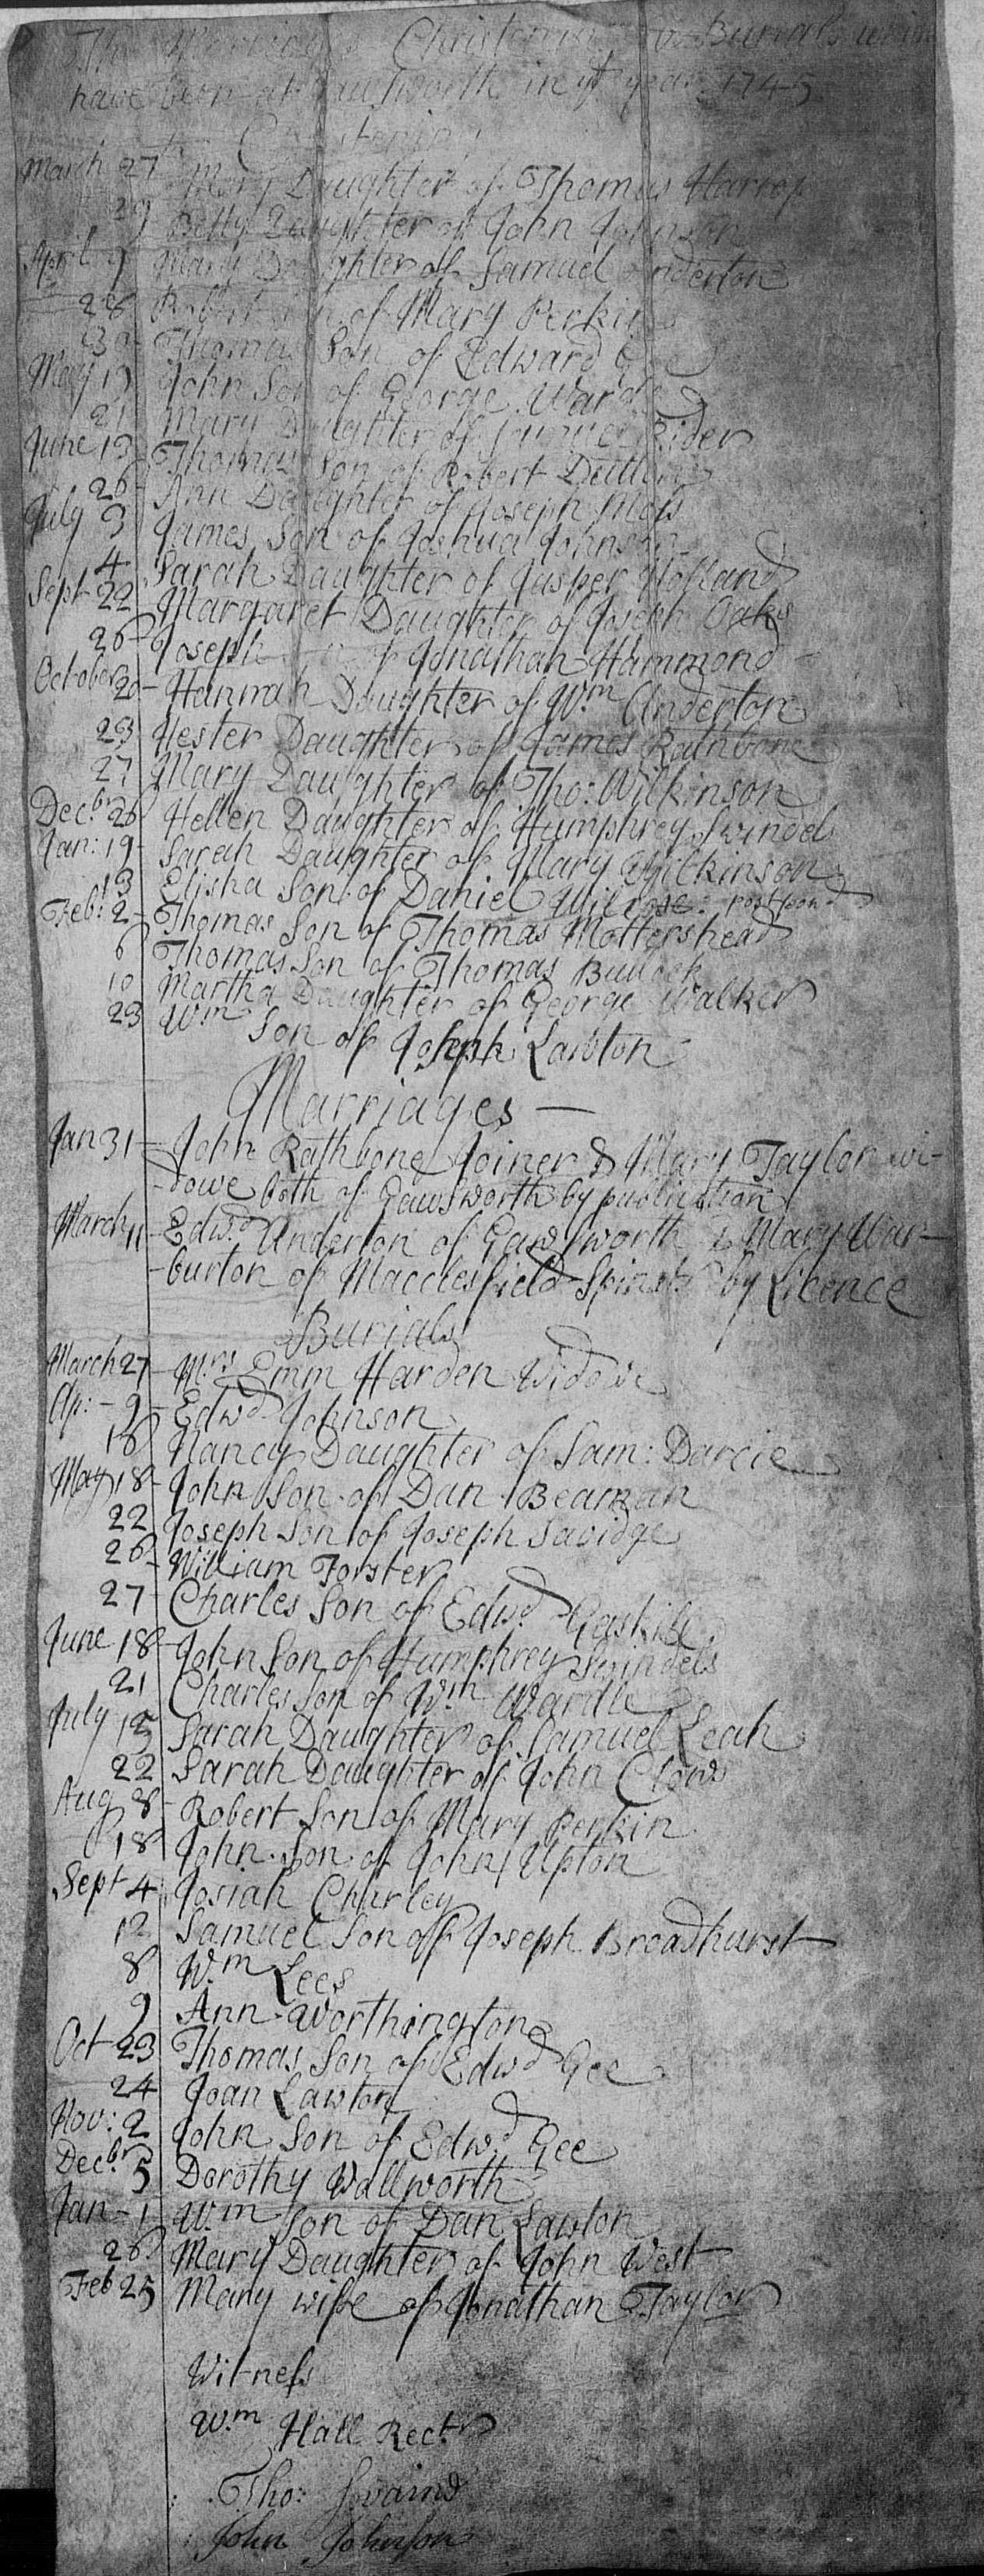 The Marriages Christenings & Burials which
have been at Gausworth in ye year 1745
Christenings
March 27 Mary Daughter of Thomas Harrop
29 Betty Daughter of John Johnson
April 9 Mary Daughter of Samuel Anderton
28 Robert Son of Mary Perkin
30 Thomas Son of Edward Gee
May 19 John Son of George Wardle
21 Mary Daughter of Rider
June 13 Thomas Son of Robert Dutton
26 Ann Daughter of Joseph Moss
July 3 James Son of Joshua Johnson
4 Sarah Daughter of Jasper Holland
Sept 22 Margaret Daughter of Joseph Oaks
26 Joseph of Jonathan Hammond
October 20 - Hannah Daughter of Wm Anderton
23 Hester Daughter of James Rathbone
27 Mary Daughter of Tho: Wilkinson
Decbr 26 Hellen Daughter of Humphrey Swindels
Jan: 19 - Sarah Daughter of Mary Wilkinson
13 Elisha Son of Daniel
Feb: 2 - Thomas Son of Thomas Mottershead
6 Thomas Son of Thomas Bullock
10 Martha Daughter of George Walker
23 Wm Son of Joseph Lawton
Marriages —
Jan 31 - John Rathbone Joiner & Mary Taylor wi-
-dowe both of Gawsworth by publication
March 11 - Edwd Anderton of Gawsworth & Mary War-
-burton of Macclesfield Spinstr by Licence
Burials
March 27 - Mrs Emm Harden Widowe
Ap: - 9 - Edwd Johnson
18 Nancy Daughter of Sam: Darcie
May 18 - John Son of Dan Beaman
22 Joseph Son of Joseph Savidge
26 - William Forster
27 - Charles Son of Edwd Gaskill
June 18 - John Son of Humphrey Swindels
21 Charles Son of Wm Wardle
July 15 Sarah Daughter of Samuel Leah
22 Sarah Daughter of John Clows
Aug 8 - Robert Son of Mary Perkin
18 John Son of John Upton
Sept 4 Josiah Churley
12 Samuel Son of Joseph Broadhurst
8 Wm Lees
9 Ann Worthington
Oct 23 Thomas Son of Edwd Gee
24 Joan Lawton
Nov: 2 John Son of Edwd Gee
Decbr 5 Dorothy Wallworth
Jan - 1 Wm Son of Dan Lawton
26 Mary Daughter of John West
Feb 25 Mary wife of Jonathan Taylor
Witness
Wm Hall Rectr
Tho: Swaind
John Johnson